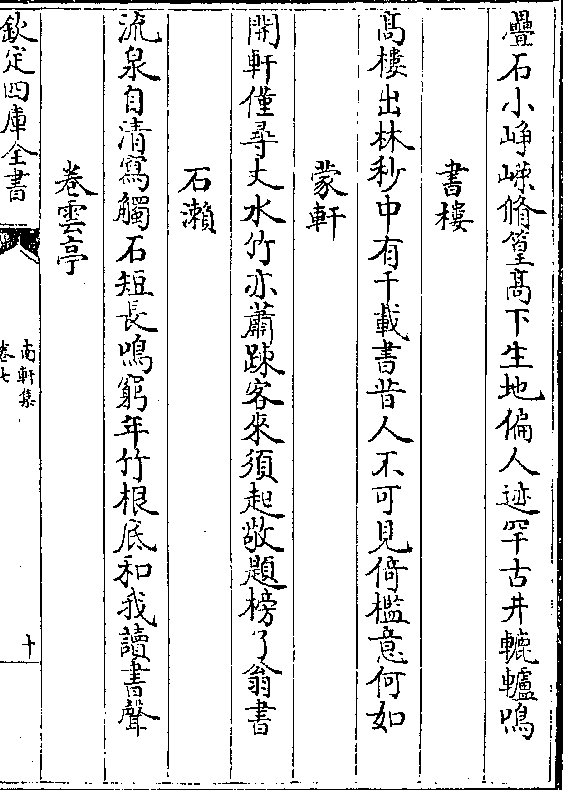 疊石小崢嶸脩篁髙下生地偏人迹罕古井轆轤鳴
書樓
髙樓出林杪中有千載書昔人不可見倚檻意何如
蒙軒
開軒僅尋丈水竹亦蕭踈客來須起敬題榜了翁書
石瀨
流泉自清寫觸石短長鳴窮年竹根底和我讀書聲
卷雲亭
欽定四庫全書
南軒集
卷七
十